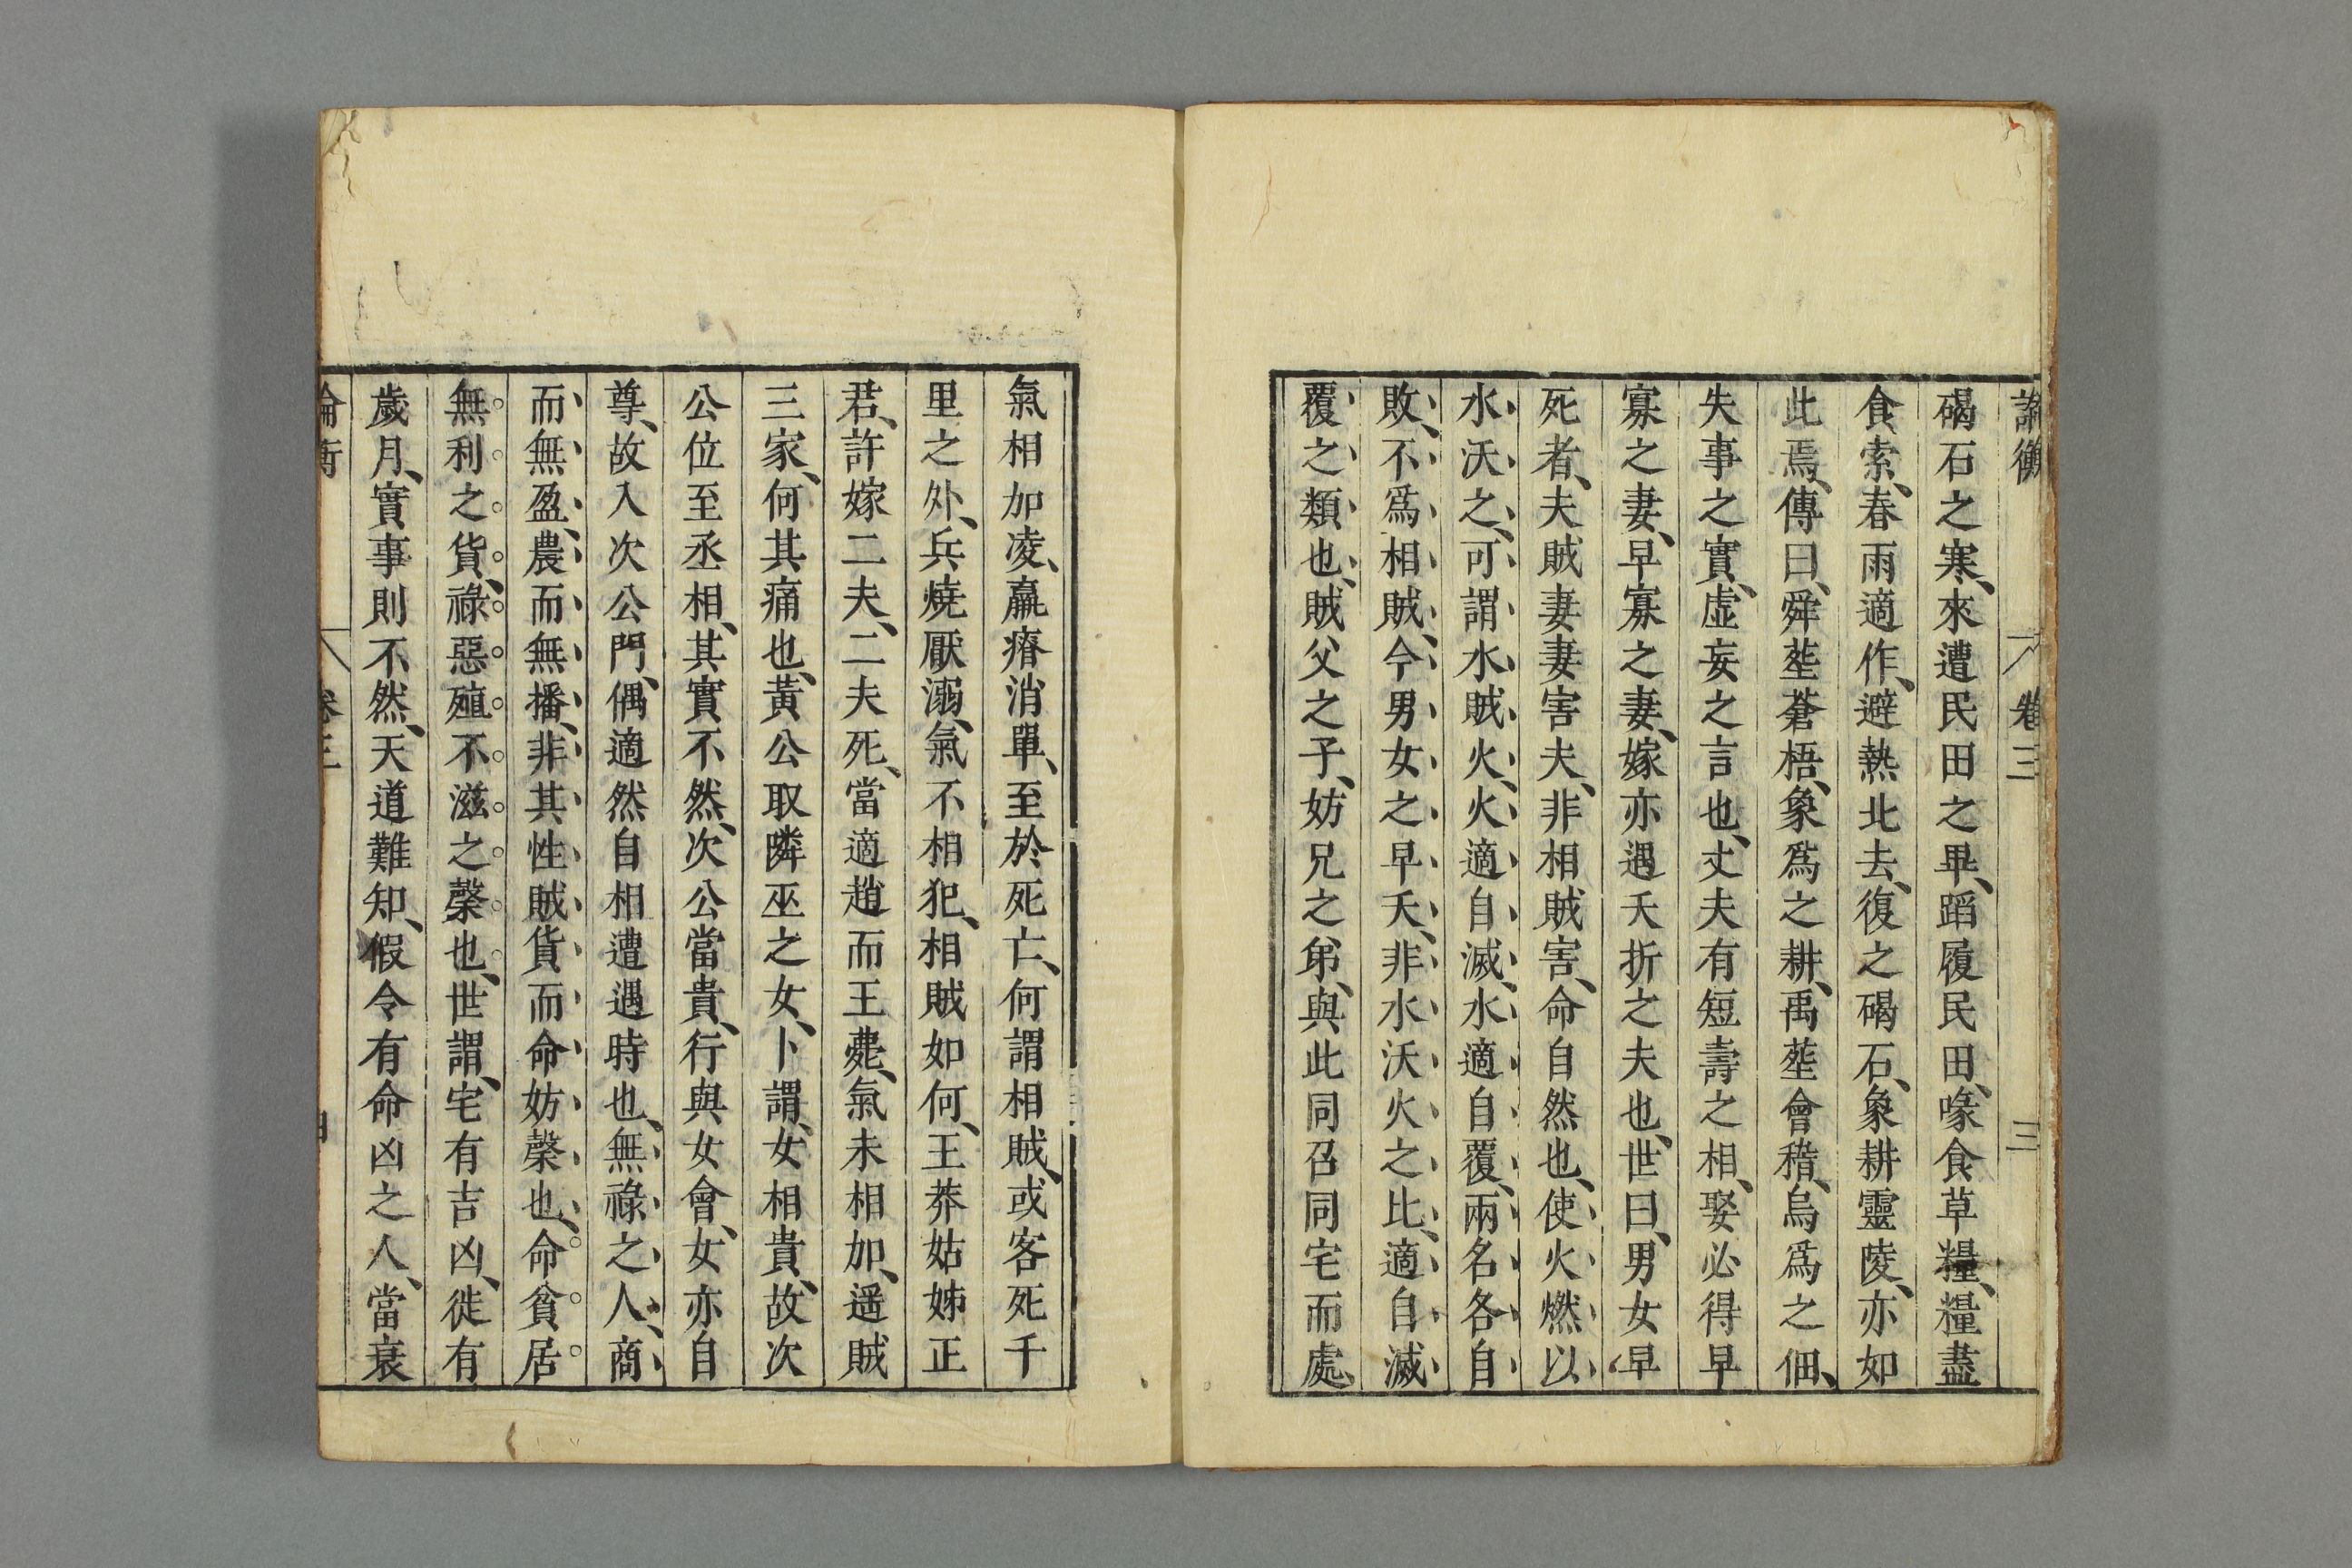 論衡 卷三 三
碣石之寒、來遭民田之畢、蹈履民田、喙食草糧、糧盡
食索、春雨適作、避熱北去、復之碣石、象耕靈陵、亦如
此焉、傳曰、舜塟蒼梧、象爲之耕、禹塟會稽、烏爲之佃、
失事之實、虚妄之言也、丈夫有短壽之相、娶必得早
寡之妻、早寡之妻、嫁亦遇夭折之夫也、世曰、男女早
死者、夫賊妻妻害夫、非相賊害、命自然也、使火燃以
水沃之、可謂水賊火、火適自滅、水適自覆、兩名各自
敗、不爲相賊、今男女之早夭、非水沃火之比、適自滅
覆之類也、賊父之子、妨兄之弟、與此同召同宅而處、
氣相加凌、羸瘠消單、至於死亡、何謂相賊、或客死千
里之外、兵燒厭溺、氣不相犯、相賊如何、王莽姑姊正
君、許嫁二夫、二夫死、當適趙而王薨、氣未相加、遥賊
三家、何其痛也、黃公取隣巫之女、卜謂、女相貴、故次
公位至丞相、其實不然、次公當貴、行與女會、女亦自
尊、故入次公門、偶適然自相遭遇時也、無祿之人、商
而無盈、農而無播、非其性賊貨而命妨槩也、命貧居
無利之貨、祿惡殖不滋之槩也、世謂、宅有吉凶、徙有
歲月、實事則不然、天道難知、假令有命凶之人、當衰
論衡 卷三